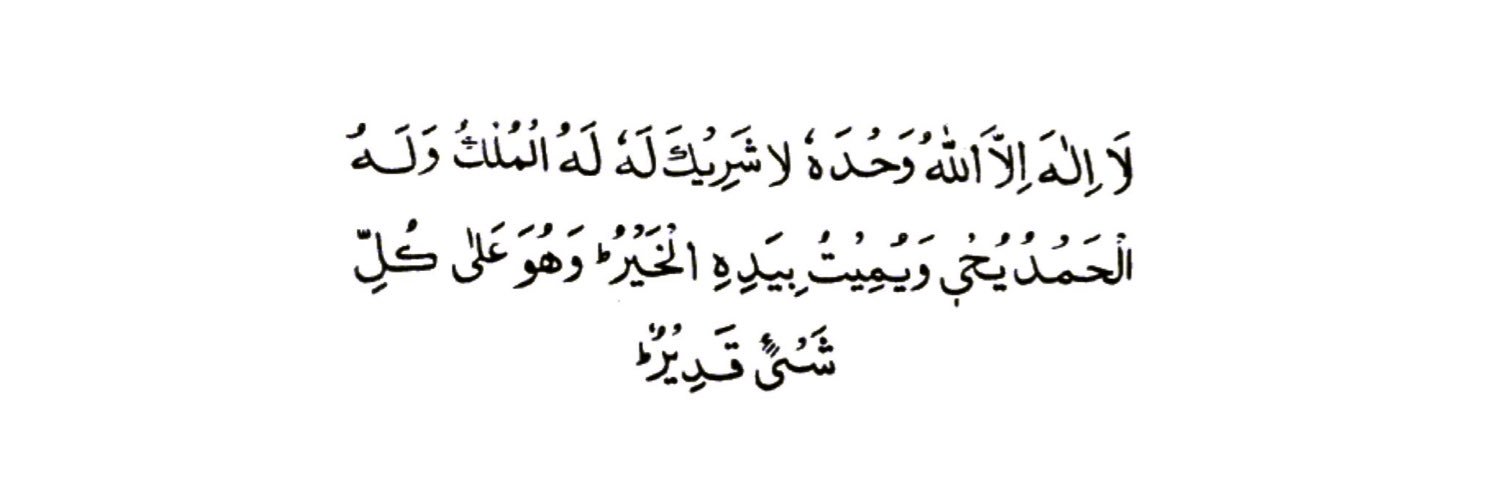 لَا اِلٰهَ اِلَّا اللّٰهُ وَحْدَهٗ لَا شَرِيْكَ لَهٗ لَهُ الْمُلْكُ وَلَـهُ
الْحَمْدُ يُحْيٖ وَيُمِيْتُ بِيَدِهِ الْخَيْرُؕ وَهُوَ عَلٰى كُلِّ
شَىْءٍ قَدِيْرٌؕ